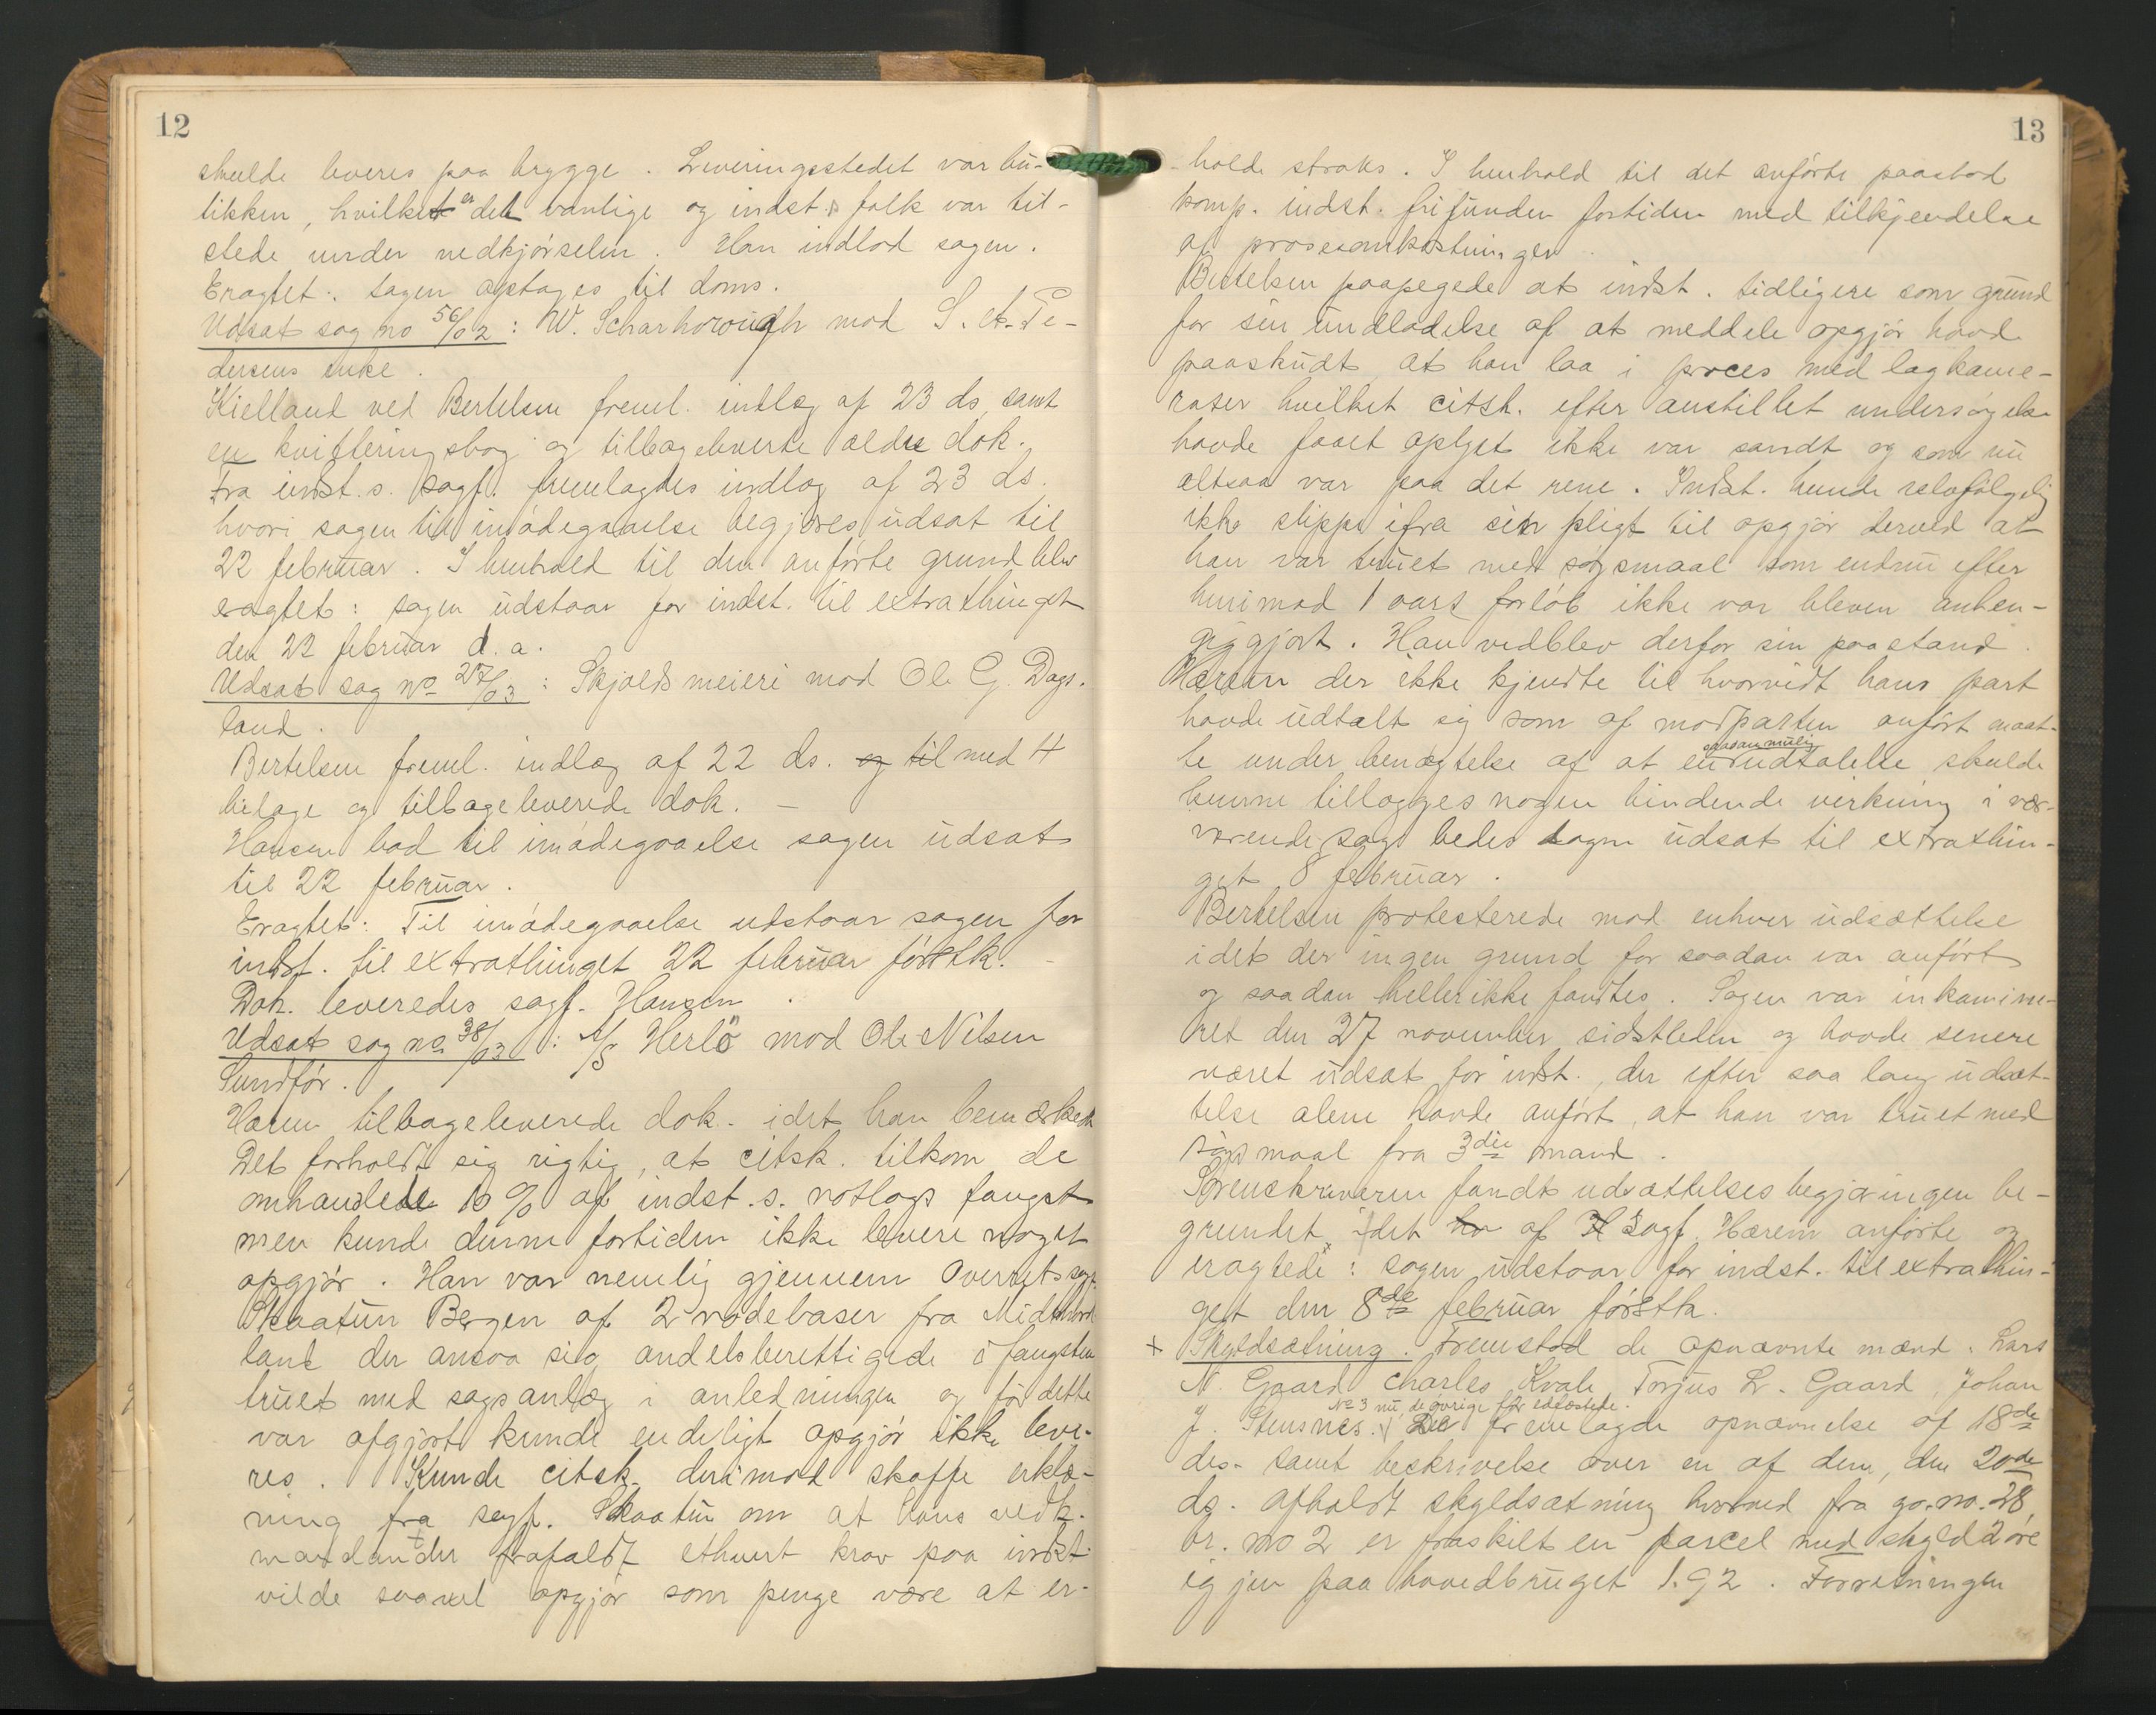 12
skulde leveres paa brygge. Leveringsstedet var bu-
tikken, hvilket er det vanlige og indst.s folk var til-
stede under nedkjørselen. Han indlod sagen.
Eragtet: Sagen optages til doms.
Udsat sag no 56/02: W. Scharhorough mod S. et. Pe-
dersens enke.
Kielland ved Bertelsen freml. indlæg af 23 ds, samt
en kvitteringsbog og tilbageleverte ældre dok.
Fra indst.s. sagf. fremlagdes indlæg af 23 ds.
hvori sagen til imødegaaelse begjæres udsat til
22 februar. I henhold til den anførte grund blev
eragtet: sagen udstaar for indst. til extrathinget
den 22 februar d. a.
Udsat sag no 27/03: Skjolds meieri mod Ole G. Dags-
land.
Bertelsen freml. indlæg af 22 ds. og til med 4
bilage og tilbageleverede dok. –
Hansen bad til imødegaaelse sagen udsat
til 22 februar.
Eragtet: Til imødegaaelse udstaar sagen for
indst. til extrathinget 22 februar førstk. –
Dok. leveredes sagf. Hansen.
Udsat sag no 38/03: A/S Herlø mod Ole Nilsen
Sundfør.
Hærem tilbageleverede dok. idet han bemærkede
Det forholdt sig rigtig, at citsk. tilkom de
omhandlede 10 % af indst.s. notlags fangst
men kunde denne fortiden ikke levere noget
opgjør. Han var nemlig gjennem Overretssagf.
Skaatun Bergen af 2 vadebaser fra Midthord-
land der ansaa sig andelsberettigede i fangsten
truet med sagsanlæg i anledningen og før dette
var afgjort kunde endeligt opgjør ikke leve-
res. Kunde citsk. derimod skaffe erklæ-
ning fra sagf. Skaatun om at hans vedk.
mandanter frafaldt ethvert krav paa indst.
vilde saavel opgjør som penge være at er-
13
holde straks. I henhold til det anførte paastod
komp. indst. frifunden fortiden med tilkjendelse
af prosesomkostninger.
Bertelsen paapegede at indst. tidligere som grund
for sin undladelse af at meddele opgjør havde
paaskudt at han laa i proces med lagkame-
rater hvilket citsk. efter anstillet undersøgelse
havde faaet oplyst ikke var sandt og som nu
altsaa var paa det rene. Indst. kunde selvfølgelig
ikke slippe ifra sin pligt til opgjør derved at
han var truet med søgsmaal som endnu efter
henimod 1 aars forløb ikke var bleven anhen-
giggjort. Han vedblev derfor sin paastand.
Hærem der ikke kjendte til hvorvidt hans part
havde udtalt sig som af modparten anført maat-
te under benægtelse af at en saadan mulig udtalelse skulde
kunne tillægges nogen bindende virkning i vær-
værende sag bedes sagen udsat til extrathin-
get 8 februar.
Bertelsen protesterede mod enhver udsættelse
idet der ingen grund for saadan var anført
og saadan heller ikke fandtes. Sagen var inkamine-
ret den 27 november sidstleden og havde senere
været udsat for indst., der efter saa lang udsæt-
telse alene havde anført, at han var truet med
søgsmaal fra 3die mand.
Sorenskriveren fandt udsættelsesbegjæringen be-
grundet i det af sagf. Hærem anførte og
eragtede: sagen udstaar for indst. til extrathin-
get den 8de februar førstk.
+ Skyldsætning. Fremstod de opnævnte mænd: Lars
N. Gaard Charles Kvale, Torjus L. Gaard, Johan
No 3 nu, de øvrige før edfæstede.
J. Stensnes. De fremlagde opnævnelse af 18de
ds. samt beskrivelse over en af dem, den 20de
ds. afholdt skyldsætning hvorved fra g. no. 28,
br. no 2 er fraskilt en parcel med skyld 2 øre
igjen paa hovedbruget 1.92. Forretningen